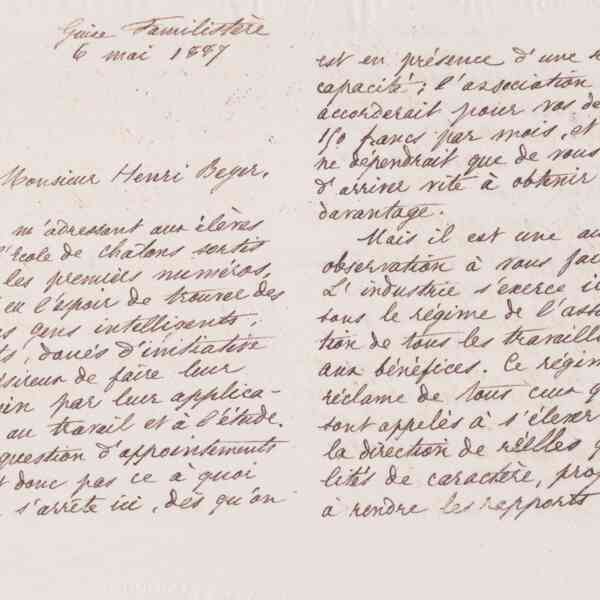 Guise Familistère
6 mai 1887
Monsieur Henri Beyer,
m'adressant aux élèves
école de chalons sortis
les premiers numéros,
eu l'espoir de trouver des
gens intelligents,
doués d'initiative
désireux de faire leur
par leur applica-
au travail et à l'étude.
question d'appointements
donc pas ce à quoi
s'arrête ici, dès qu'on
est en présence d'une
capacité ; l'association
accorderait pour vos
150 francs par mois, et
ne dépendrait que de vous
d'arriver vite à obtenir
davantage.
Mais il est une
observation à vous
L'industrie s'exerce
sous le régime de
tion de tous les
aux bénéfices. Ce
réclame de tous ceux
sont appelés à s'élever
la direction de réelles
lités de caractère,
à rendre les rapports